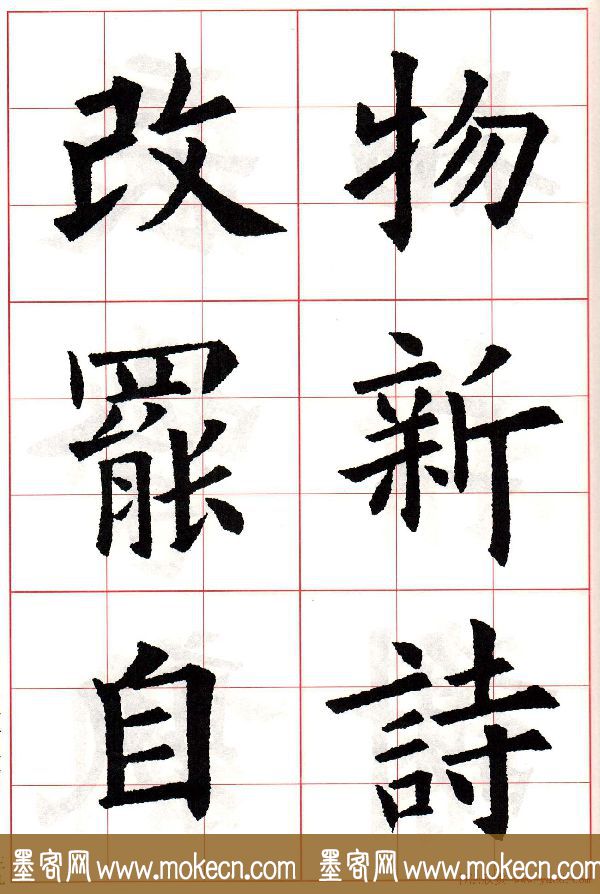 物新詩
改罷自
墨客网 www.mokecn.com 墨客网 www.mokecn.com